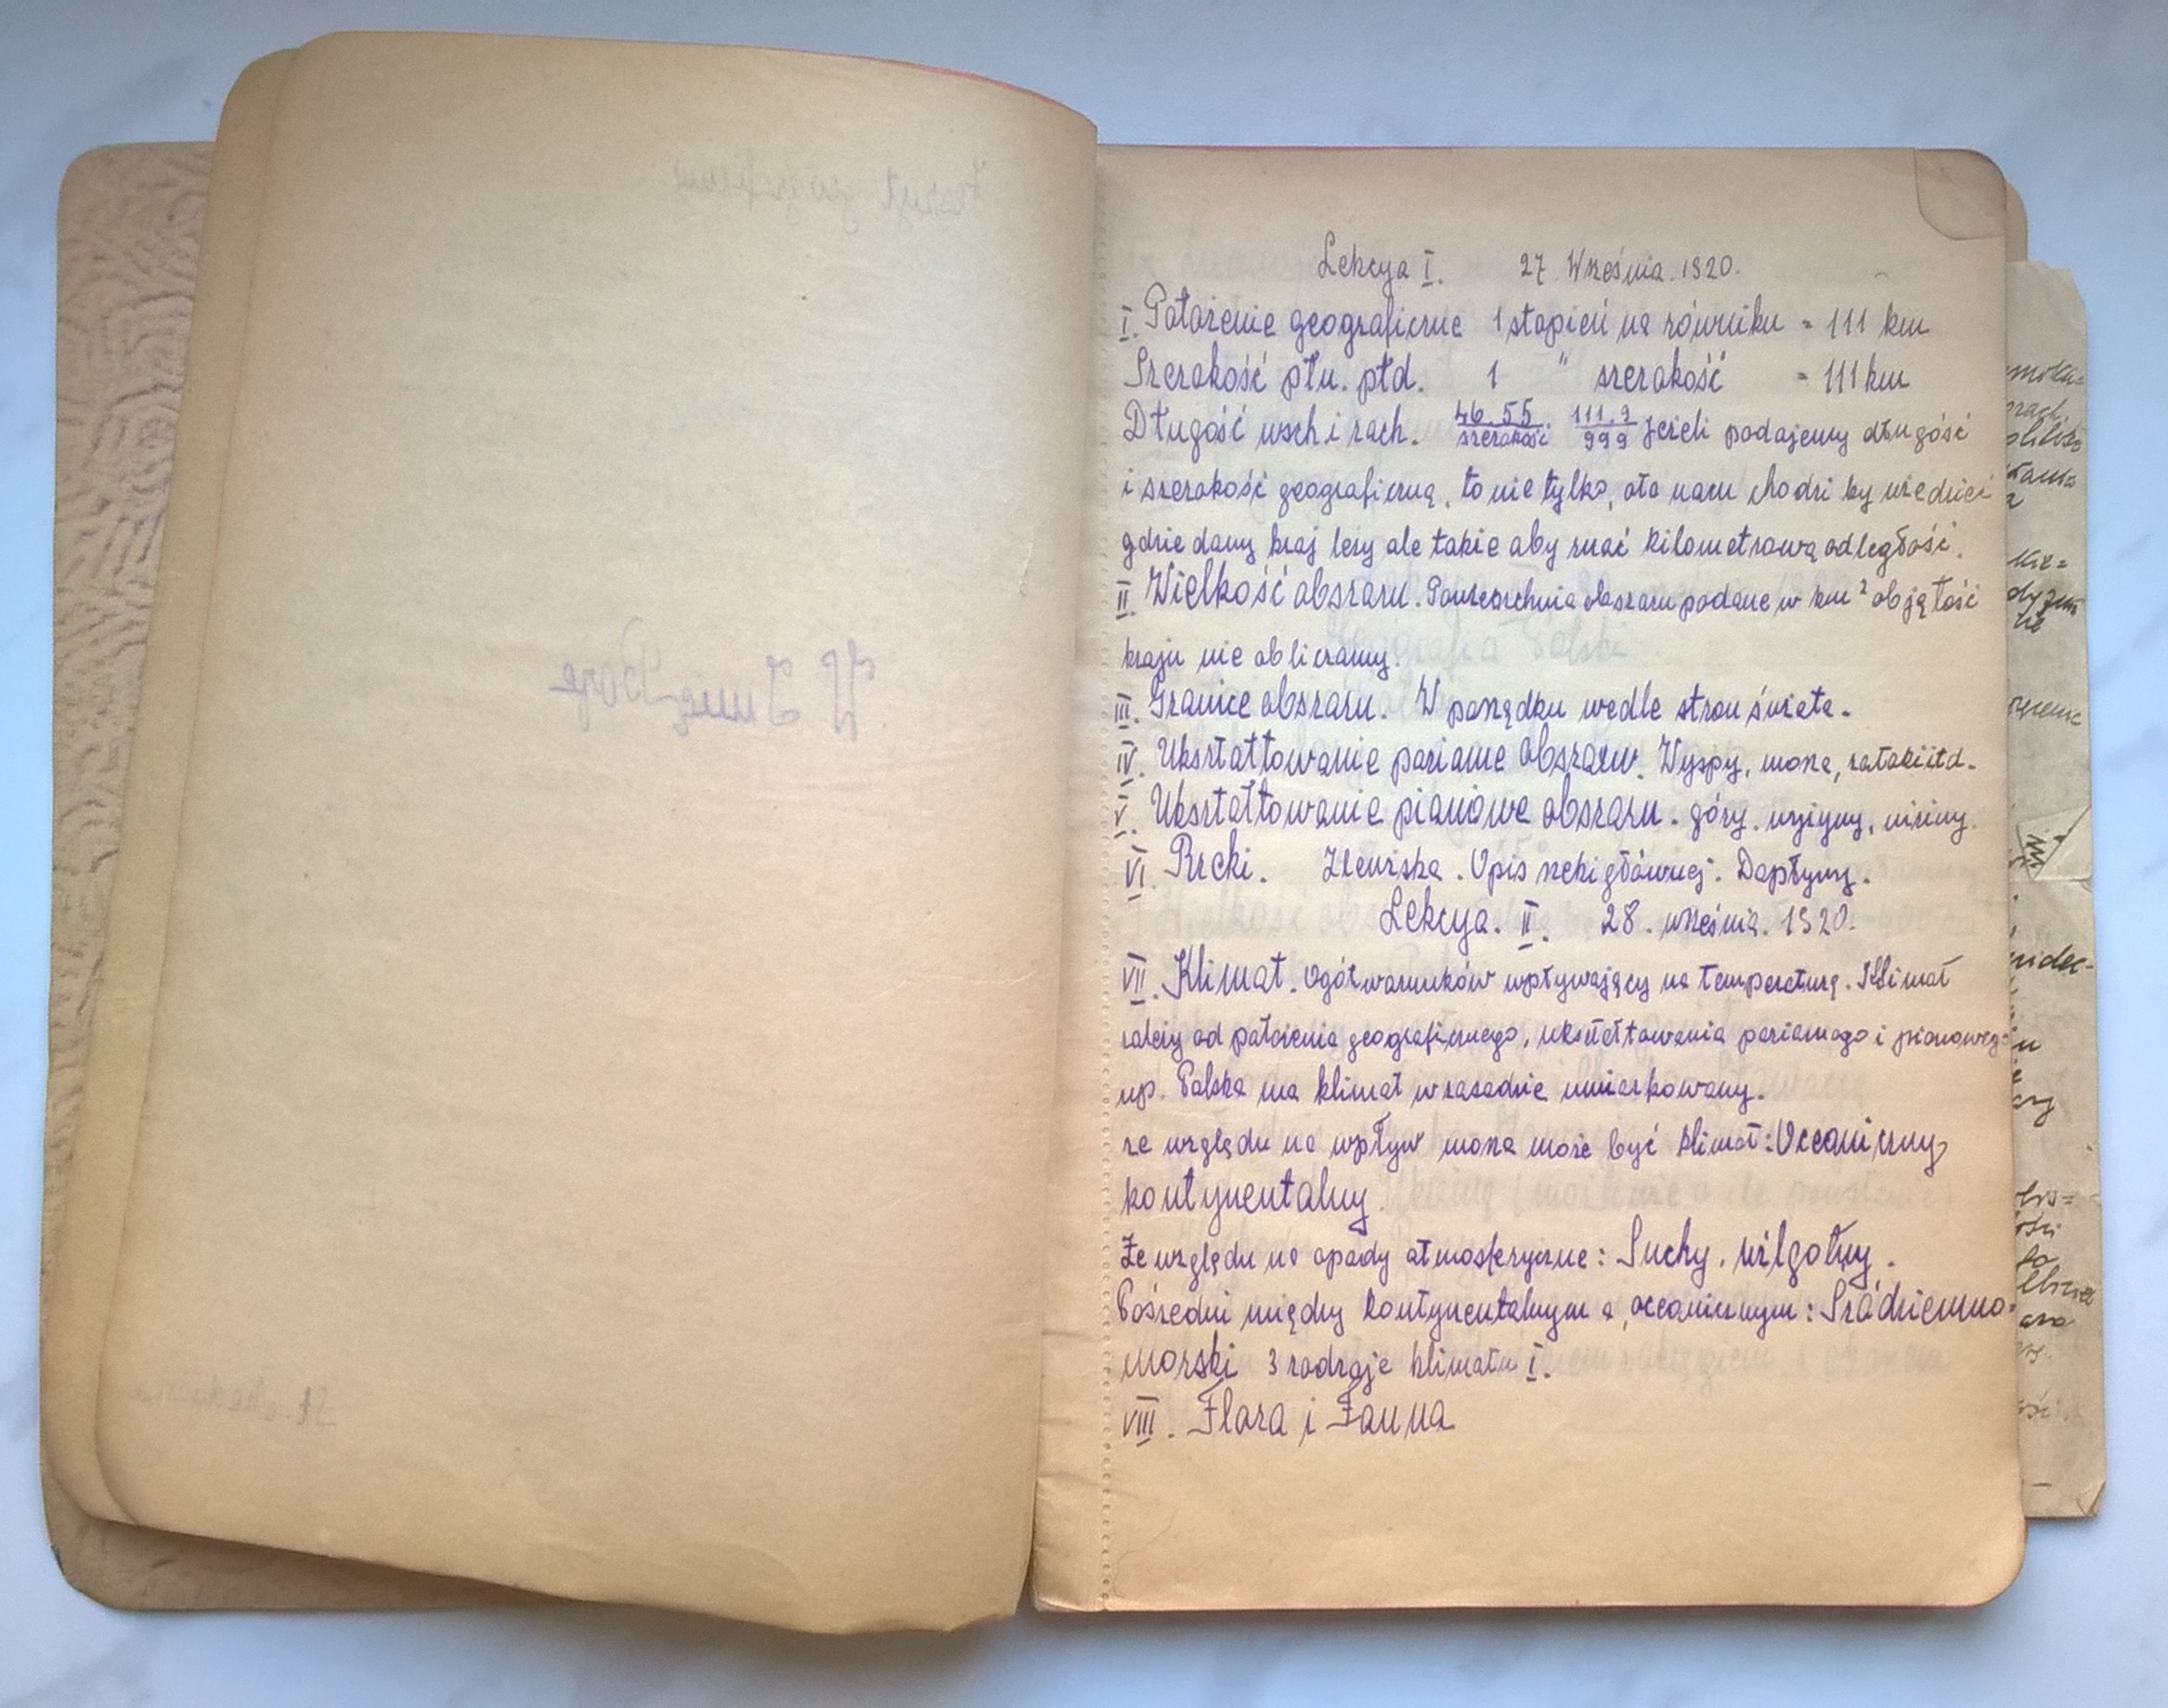 Lekcya I. 27. Września. 1920.
I. Położenie geograficzne 1 stopień na równiku = 111 km
Szerokość płn. płd. 1 " szerokość = 111 km
Długość wsch i zach. 46.55 / szerokość 111.9 / 999 Jeżeli podajemy długość
i szerokość geograficzną, to nie tylko, oto nam chodzi by wiedzieć
gdzie dany kraj leży ale także aby znać kilometrową odległość.
II. Wielkość obszaru. Powierzchnia obszaru podane w km² objętość
kraju nie obliczamy.
III. Granice obszaru. W porządku wedle stron świata.
IV. Ukształtowanie poziome obszaru. Wyspy, morze, zatoki itd.
V. Ukształtowanie pionowe obszaru. góry. wyżyny, niziny.
VI. Rzeki. Zlewiska. Opis rzeki głównej. Dopływy.
Lekcya. II. 28. września. 1920.
VII. Klimat. Ogół warunków wpływający na temperaturę. Klimat
zależy od położenia geograficznego, ukształtowania poziomego i pionowego
np. Polska ma klimat w zasadzie umiarkowany.
ze względu na wpływ morza może być klimat: Oceaniczny,
kontynentalny.
Ze względu na opady atmosferyczne: Suchy, wilgotny.
Pośredni między kontynentalnym a, oceanicznym: Śródziemno=
morski 3 rodzaje klimatu I.
VIII. Flora i Fauna